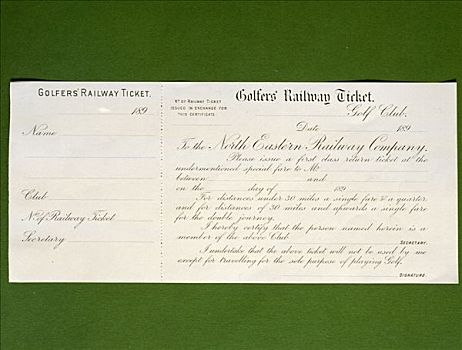 GOLFERS' RAILWAY TICKET.
189
Name
Club
No. of Railway Ticket
Secretary
No. OF RAILWAY TICKET
ISSUED IN EXCHANGE FOR
THIS CERTIFICATE.
Golfers' Railway Ticket.
Golf Club.
Date 189
To the North Eastern Railway Company.
Please issue a first class return ticket at the
undermentioned special fare to Mr
between and
on the day of 189
For distances under 30 miles a single fare & a quarter
and for distances of 30 miles and upwards a single fare
for the double journey.
I hereby certify that the person named herein is a
member of the above Club
SECRETARY.
I undertake that the above ticket will not be used by me
except for travelling for the sole purpose of playing Golf.
SIGNATURE.